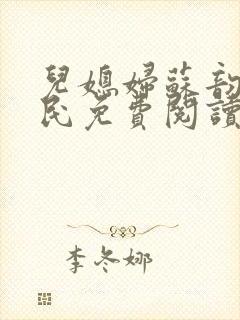 兒媳婦蘇韵
民免費閱讀
李冬娜